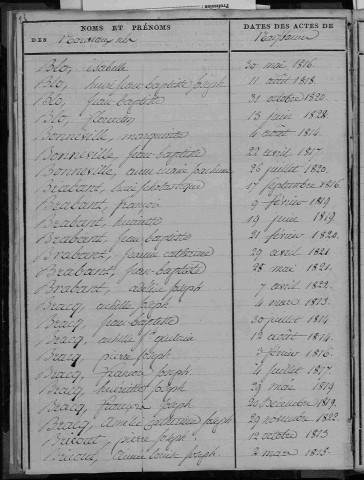 NOMS ET PRÉNOMS DATES DES ACTES DE
DES Nouveaux nés Naissance
Blo, isabelle 30 mai 1816.
Blo, jean baptiste joseph 11 août 1818.
Blo, jean baptiste 31 octobre 1820.
Blo, florentin 13 juin 1822.
Bonneville, marguerite 4 août 1814.
Bonneville, jean baptiste 22 avril 1817.
Bonneville, 26 juillet 1820.
Brabant, scholastique 17 septembre 1816.
Brabant, françois 9 février 1819
Brabant, henriette 19 juin 1819.
Brabant, jean baptiste 21 février 1820.
Brabant, jeanne catherine 29 avril 1821.
Brabant, jean-baptiste 28 mai 1821.
Brabant, adèle joseph 7 avril 1822.
Bracq, achille joseph 4 mars 1813.
Bracq, jean baptiste 30 juillet 1814.
Bracq, achille 12 août 1814.
Bracq, pierre joseph 3 février 1816.
Bracq, françois joseph 4 juillet 1817.
Bracq, henriette joseph 29 mai 1819
Bracq, joseph 20 décembre 1819.
Bracq, amélie catherine joseph 29 novembre 1822.
Bricout, pierre joseph 12 octobre 1813
Bricout, aimée louise joseph 3 mars 1815.